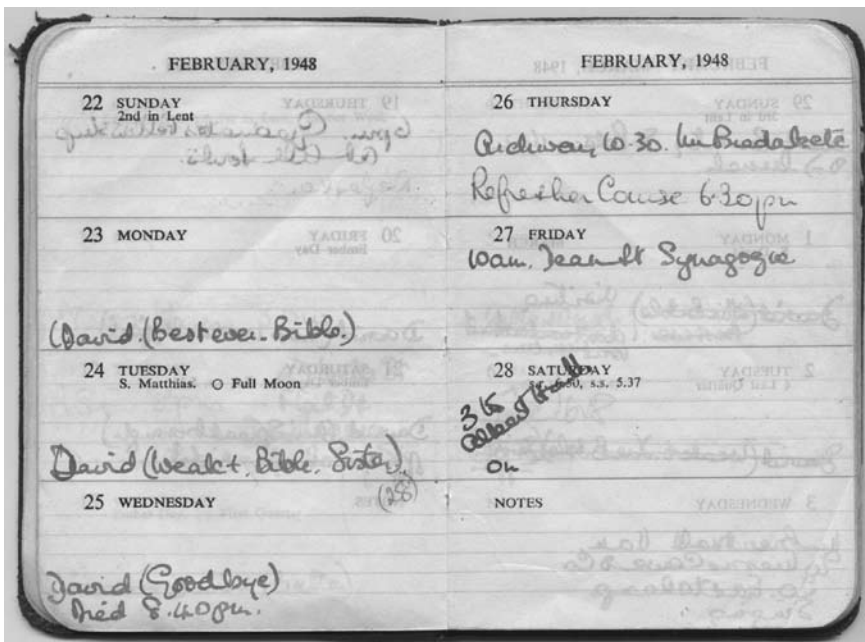 FEBRUARY, 1948
22 SUNDAY
2nd in Lent
23 MONDAY
(David. (Best ever. Bible.)
24 TUESDAY
S. Matthias. O Full Moon
David (Weak +. Bible. Sister).
(28)
25 WEDNESDAY
David (Goodbye)
Died 8.40pm.
FEBRUARY, 1948
26 THURSDAY
Archway 10.30.
Refresher Course 6.30pm
27 FRIDAY
10am. Dean St Synagogue
28 SATURDAY
s.r. 6.50, s.s. 5.37
3 15
Albert Hall
On
NOTES